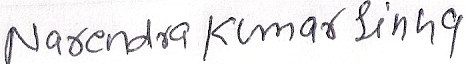 Narendra Kumar Sinha